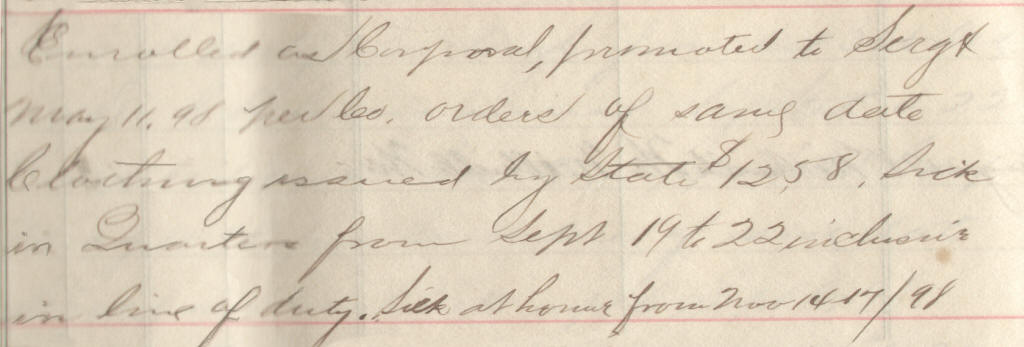 Enrolled as Corporal, promoted to Sergt
May 11. 98 per Co. orders of same date
Clothing issued by State $12.58. Sick
in Quarters from Sept 19 to 22 inclusive
in line of duty. Sick at home from Nov 14-17/98